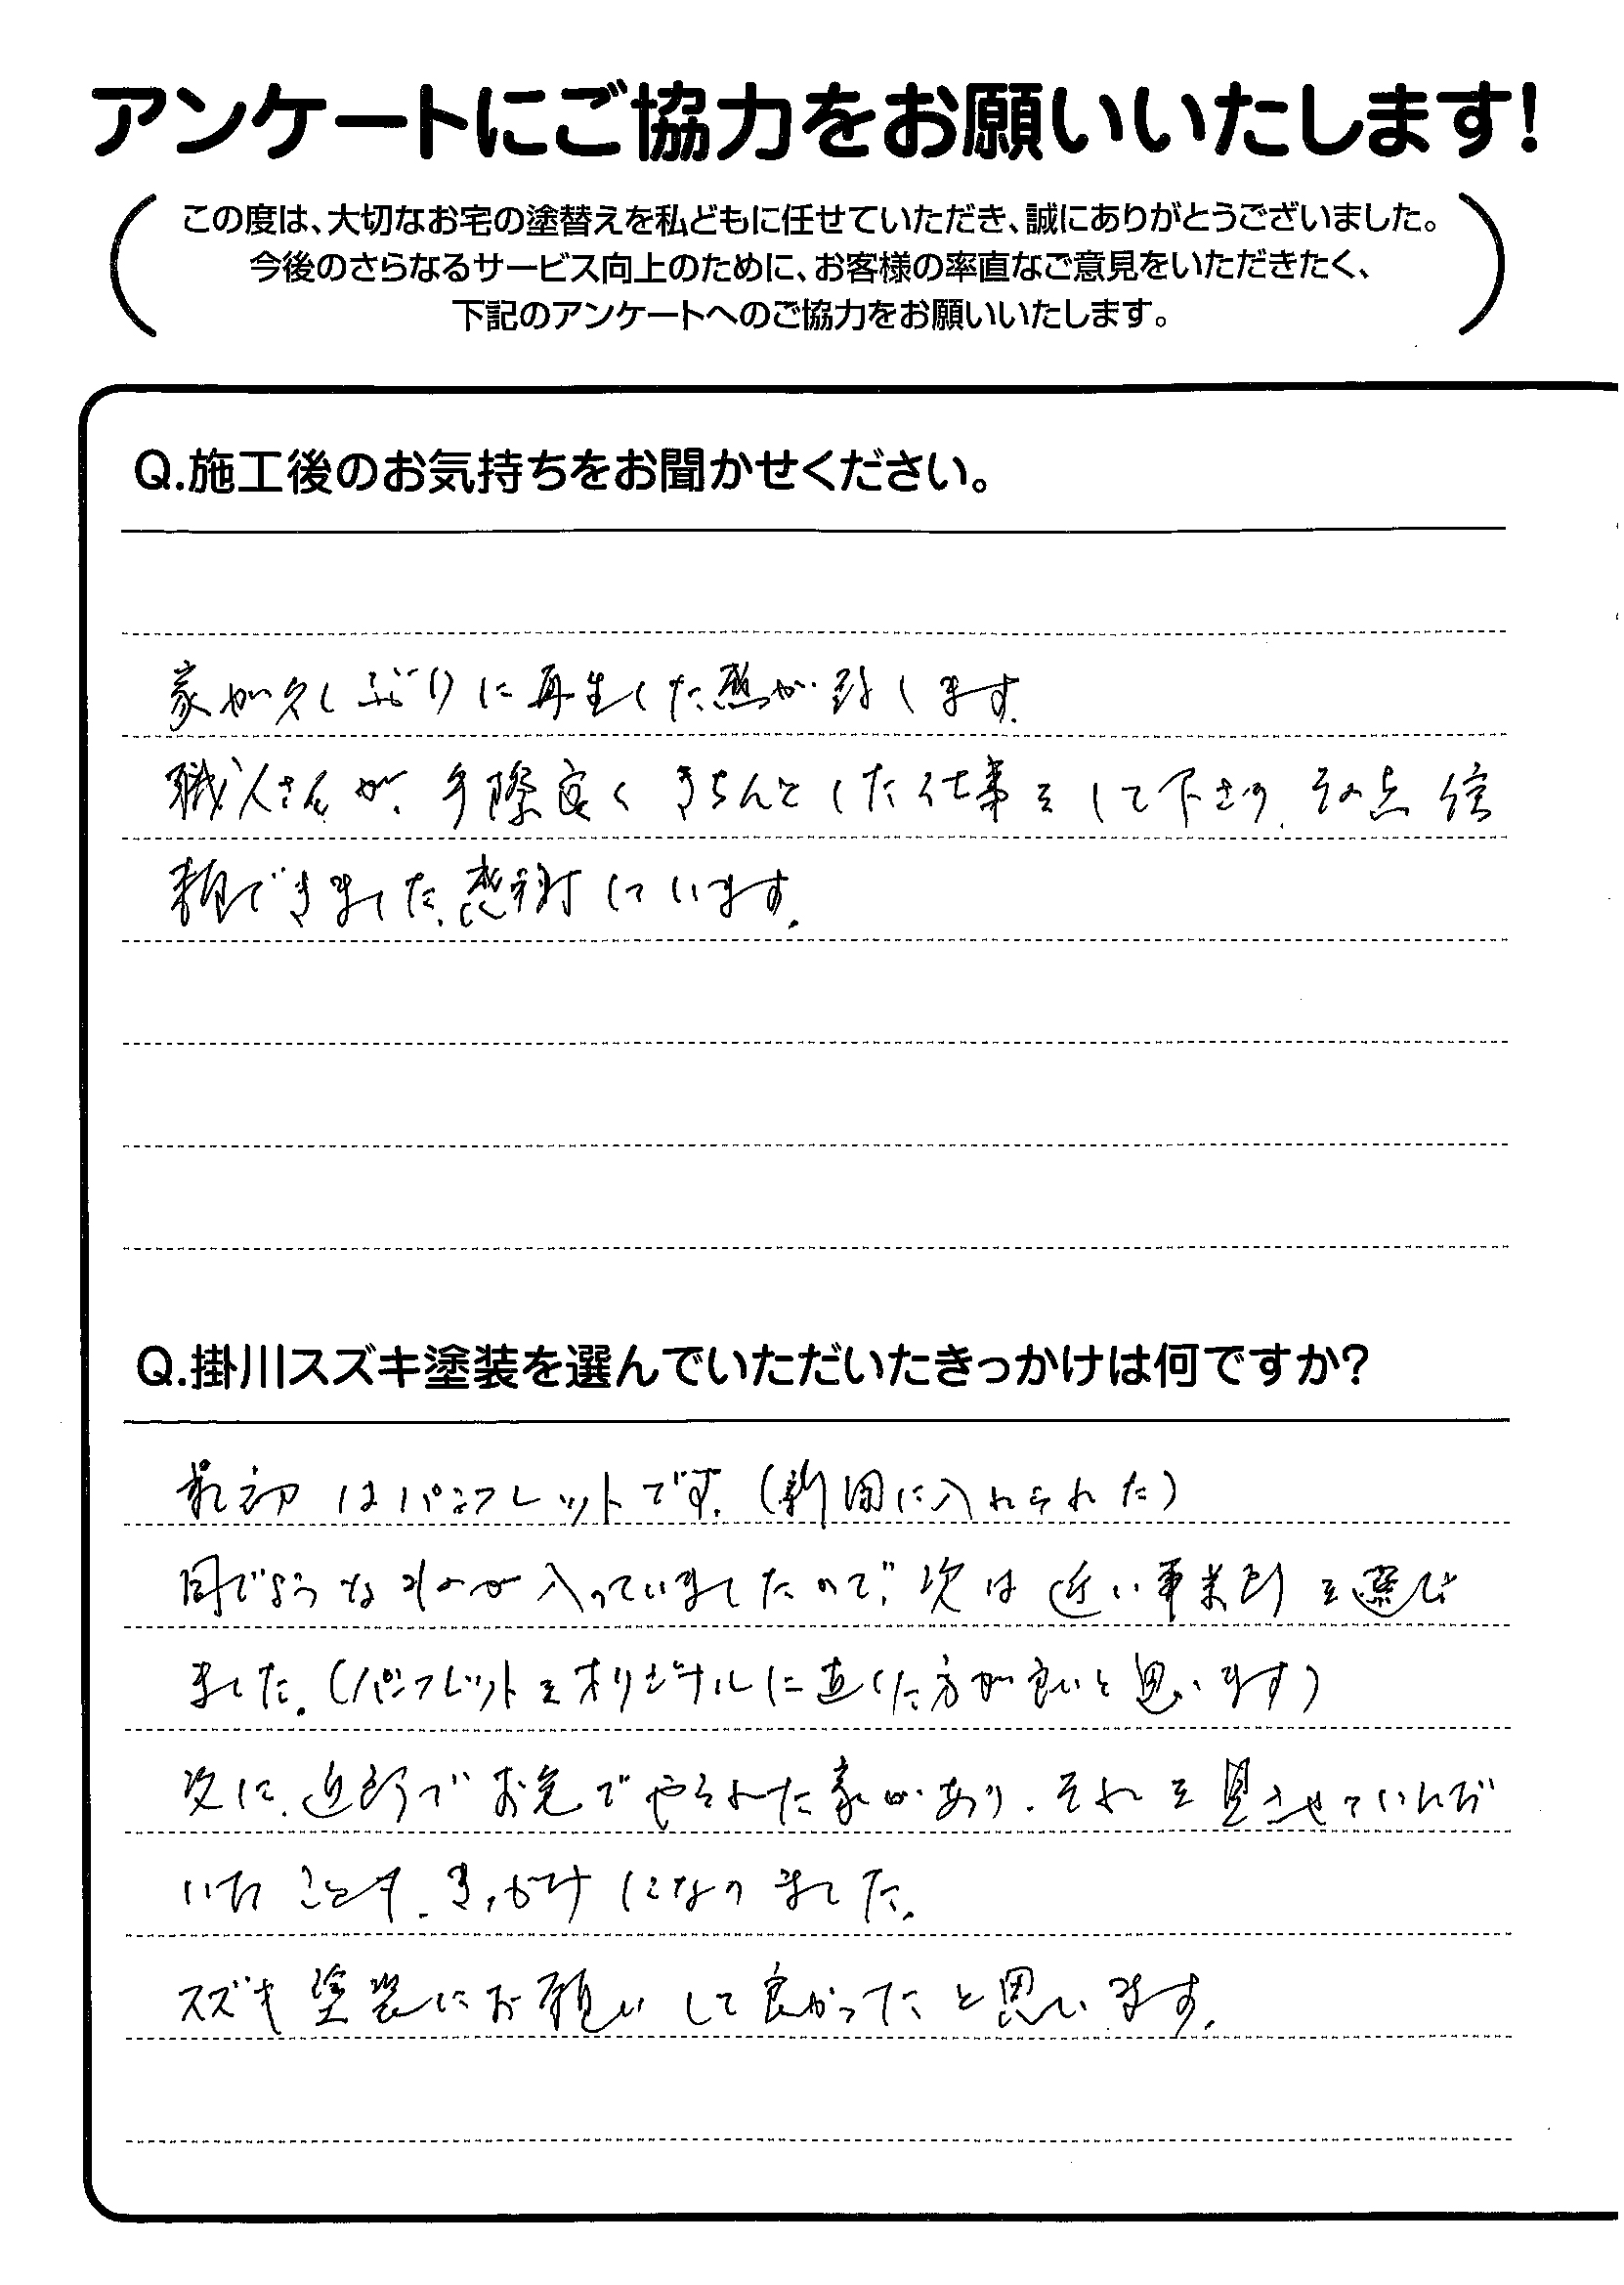 アンケートにご協力をお願いいたします!
この度は、大切なお宅の塗替えを私どもに任せていただき、誠にありがとうございました。
今後のさらなるサービス向上のために、お客様の率直なご意見をいただきたく、
下記のアンケートへのご協力をお願いいたします。
Q.施工後のお気持ちをお聞かせください。
家が久しぶりに再生した感が致します。
職人さんが、手際良くきちんとした仕事をして下さり、その点信
頼できました。感謝しています。
Q.掛川スズキ塗装を選んでいただいたきっかけは何ですか?
最初はパンフレットです。(新聞に入れられた)
同じようなものが入っていましたので、次は近い事業所を選び
ました。(パンフレットをオリジナルに直した方が良いと思います)
次に、近所でお宅でやられた家があり、それを見させていただ
いたことも、きっかけになりました。
スズキ塗装にお願いして良かったと思います。